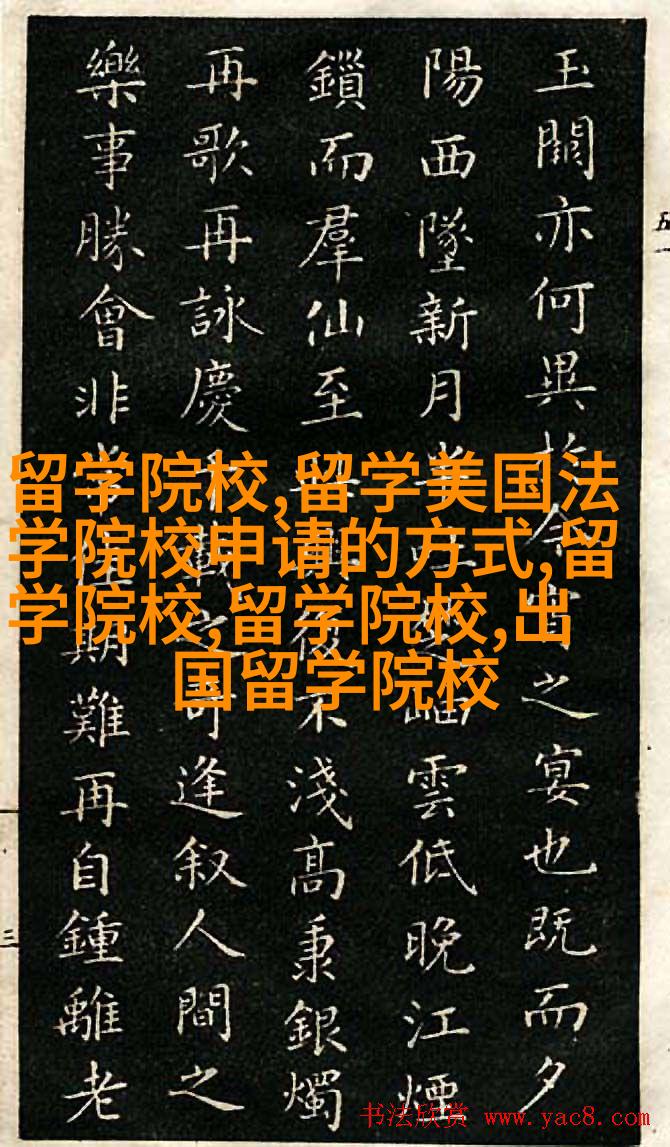 玉闕亦何異於今宵之宴也既而夕
陽西墜新月岫雲低晚江煙
鎖而羣仙至復不淺高秉銀燭
再歌再詠慶千載之奇逢叙人間之
樂事勝會非常佳期難再自鍾離老
留学院校,留学美国法
学院校申请的方式,留
学院校,留学院校,出
国留学院校
五
三
书法欣赏 www.yac8.com